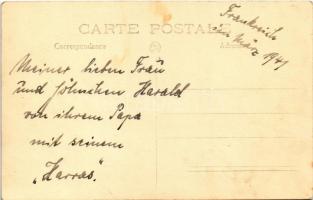 CARTE POSTALE
Correspondance
Frankreich
im März 1941
Meiner lieben Frau
und Söhnchen Harald
von ihrem Papa
mit seinem
„Harras".